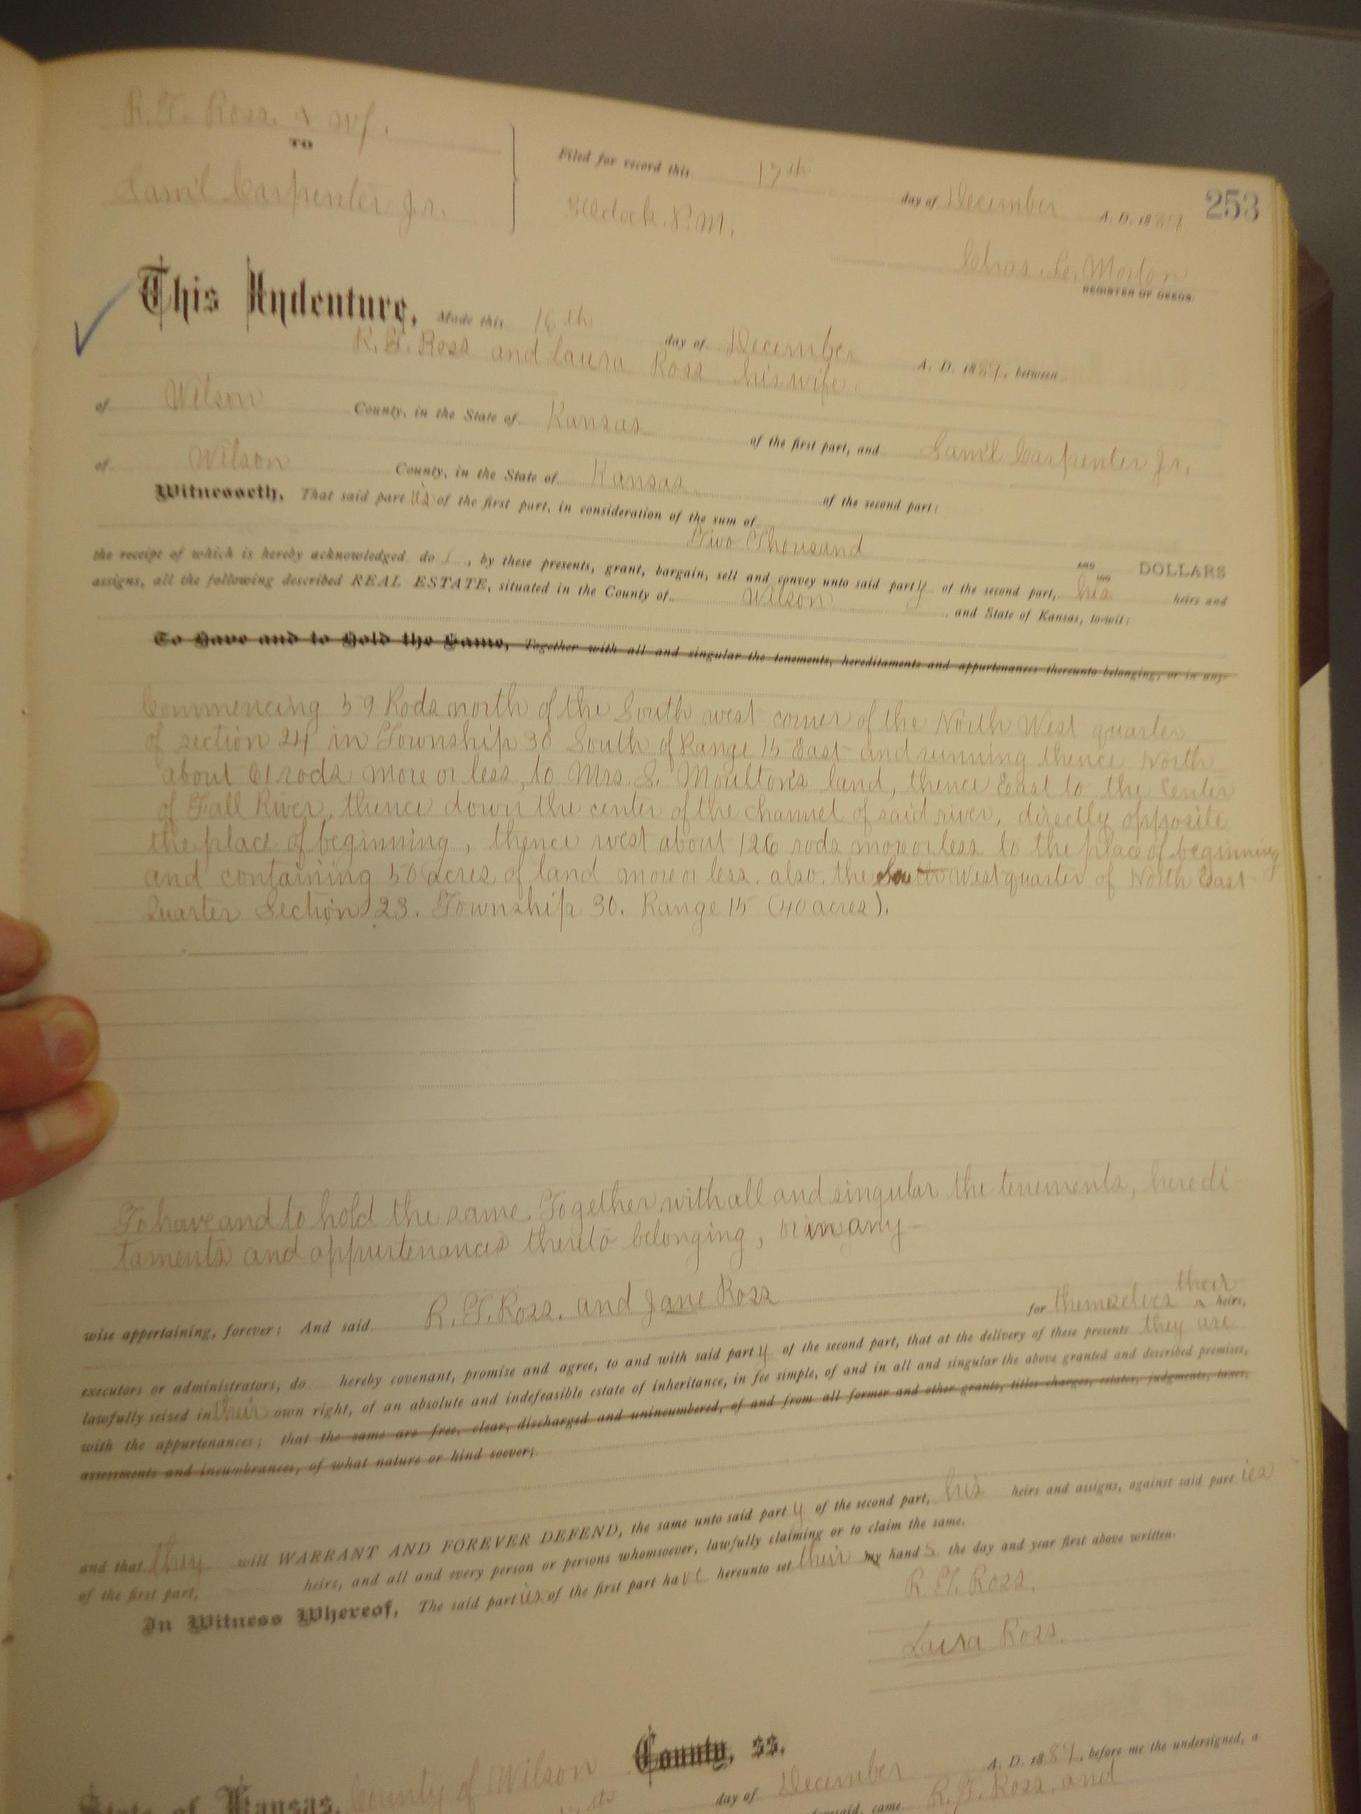 R.F. Ross & wf.
TO
Sam'l Carpenter Jr.
Filed for record this 17th day of December A. D. 1889
o'clock P.M.
253
Chas. Morton
REGISTER OF DEEDS.
This Indenture, Made this 16th day of December A. D. 1889, between
R.F. Ross and Laura Ross his wife.
of Wilson County, in the State of Kansas of the first part, and Sam'l Carpenter Jr.
of Wilson County, in the State of Kansas of the second part:
Witnesseth, That said parties of the first part, in consideration of the sum of
Two Thousand DOLLARS
the receipt of which is hereby acknowledged do, by these presents, grant, bargain, sell and convey unto said party of the second part, his heirs and
assigns, all the following described REAL ESTATE, situated in the County of Wilson and State of Kansas, to-wit:
To Have and to Hold the Same, Together with all and singular the tenements, hereditaments and appurtenances thereunto belonging, or in any-
Commencing 59 Rods north of the South west corner of the North West quarter
of section 24 in Township 30 South of Range 15 East and running thence North
about 61 rods more or less, to Mrs. S. Moulton's land, thence East to the Center
of Fall River, thence down the center of the channel of said river, directly opposite
the place of beginning, thence west about 126 rods more or less to the place of beginning
and containing 50 acres of land more or less. also the South West quarter of North East
Quarter Section 23. Township 30. Range 15 (40 acres).
To have and to hold the same. Together with all and singular the tenements, heredi-
taments and appurtenances thereto belonging, or in any-
wise appertaining, forever; And said R.F. Ross. and Jane Ross for themselves their heirs,
executors or administrators, do hereby covenant, promise and agree, to and with said party of the second part, that at the delivery of these presents they are
lawfully seized in their own right, of an absolute and indefeasible estate of inheritance, in fee simple, of and in all and singular the above granted and described premises,
with the appurtenances; that the same are free, clear, discharged and unincumbered, of and from all former and other grants, titles charges, estates, judgments, taxes,
assessments and incumbrances, of what nature or kind soever;
and that they will WARRANT AND FOREVER DEFEND, the same unto said party of the second part, his heirs and assigns, against said parties
of the first part, heirs, and all and every person or persons whomsoever, lawfully claiming or to claim the same.
In Witness Whereof, The said parties of the first part have hereunto set their my hands the day and year first above written.
R.F. Ross.
Laura Ross.
State of Kansas, County of Wilson County, ss.
day of December A. D. 1889, before me the undersigned, a
came R.F. Ross. and